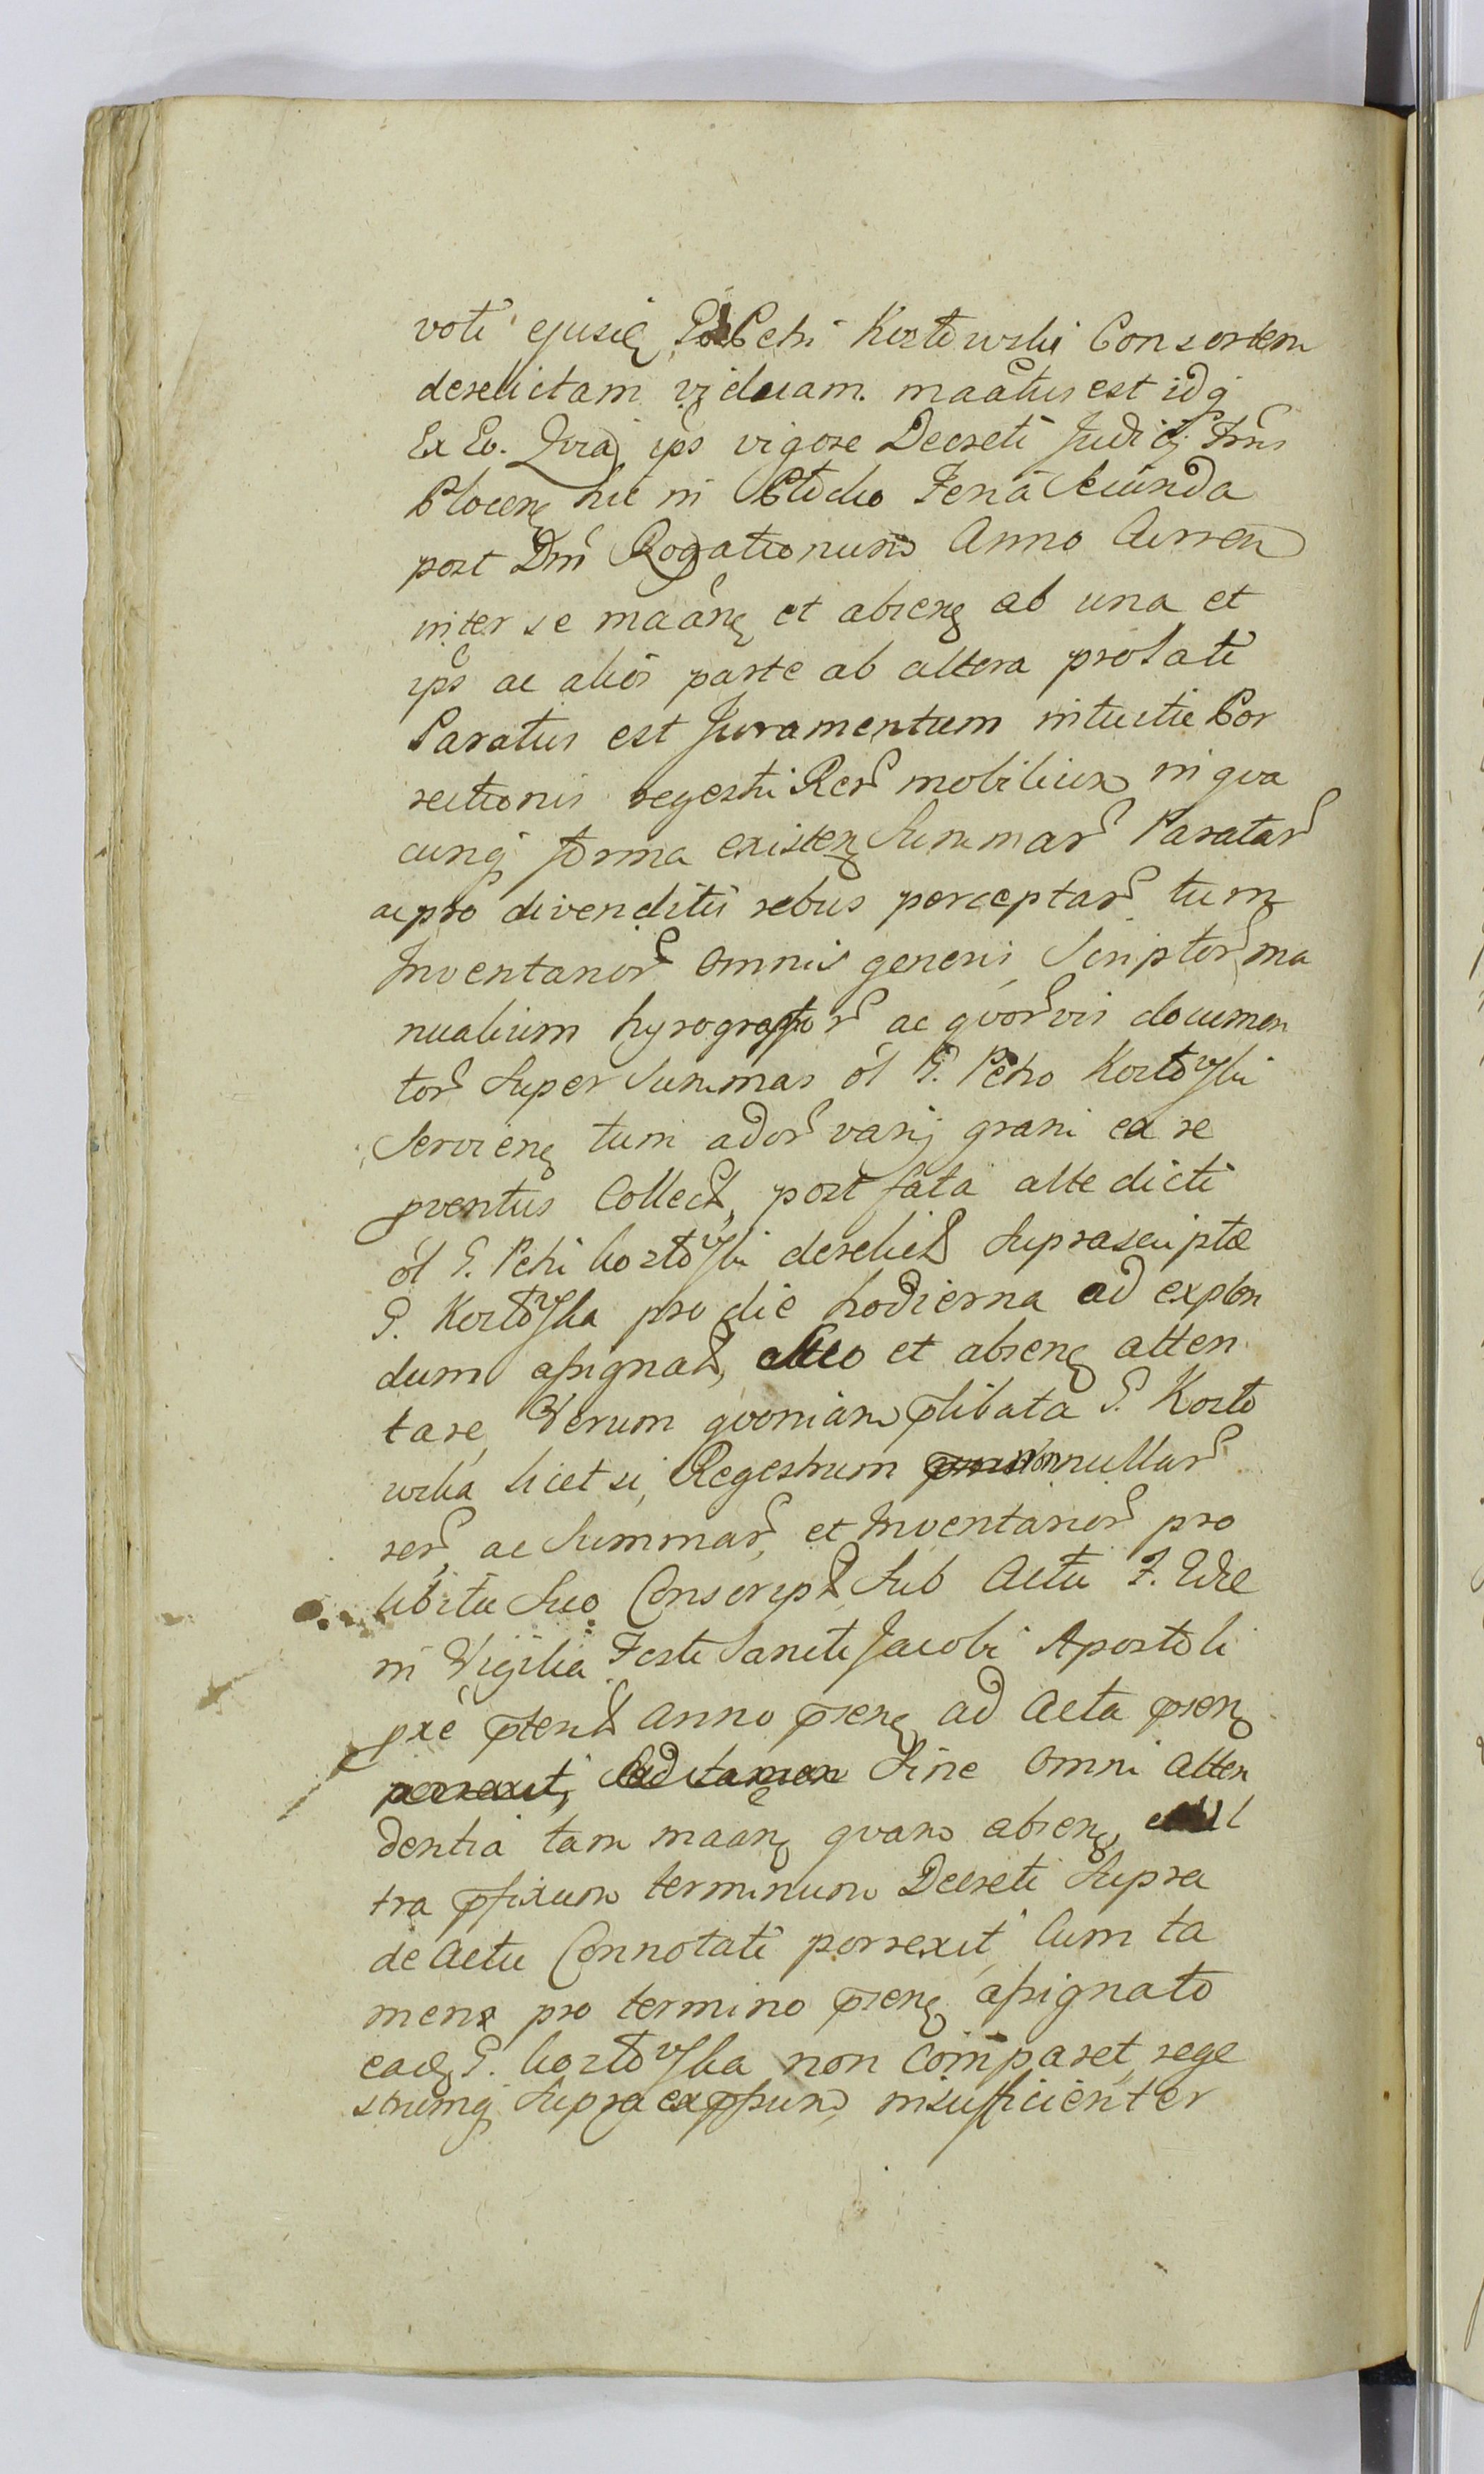 voti ejusdꝫ Petri Kozłowski Consortem
derelictam viduam. maãtus est idq
Ex Eo. Qvia ips vigore Decreti Judicij Trris
Plocenꝫ hic in Plocko Feria Secunda
post Dm̃ Rogationum Anno Curren
inter se maãnꝫ et absenꝫ ab una et
ips ac alios parte ab altera prolati
Paratus est Juramentum intuitu Cor
rectionis regestri Rer mobilium in qva
cunq forma existenꝫ Summar Paratar
ac pro divenditis rebus perceptar tum
Inventarior omnis generis Scriptor ma
nualium hyrographor ac qvorvis documen
tor Super Summas ol G. Petro Kozłowski
Servienꝫ tum ador varij grani ex re
pventus Collect, post fata alte dicti
ol G. Petri Kozłowski derelict Suprascriptæ
G. Kozłowska pro die hodierna ad explen
dum assignat, et absenꝫ atten
tare, Verum qvoniam plibata G. Kozło
wska licet si, Regestrum nonnullar
rer, ac Summar, et Inventarior pro
libitu Suo Conscript Sub Actu F. 2dæ
in Vigilia Festi Sancti Jacobi Apostoli
pxe pterit anno psenꝫ ad Acta psenꝫ
porrexit, Sed tamen Sine Omni atten
dentia tam maãnꝫ qvam absenꝫ ul
tra pfixum terminum Decreti Supra
de Actu Connotati porrexit, Cum ta
men pro termino psenꝫ assignato
eadꝫ G. Kozłowska non Comparet, rege
strumq Supra expssum, insufficienter